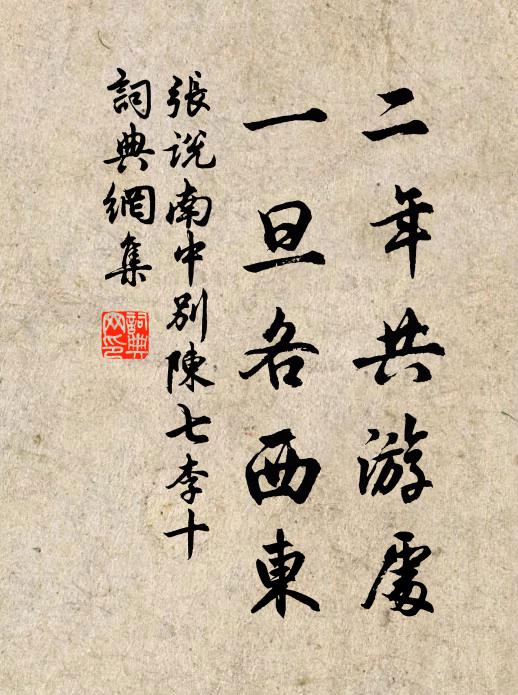 二年共游處
一旦各西東
張說南中別陳七李十
詞典網集
詞典
网印